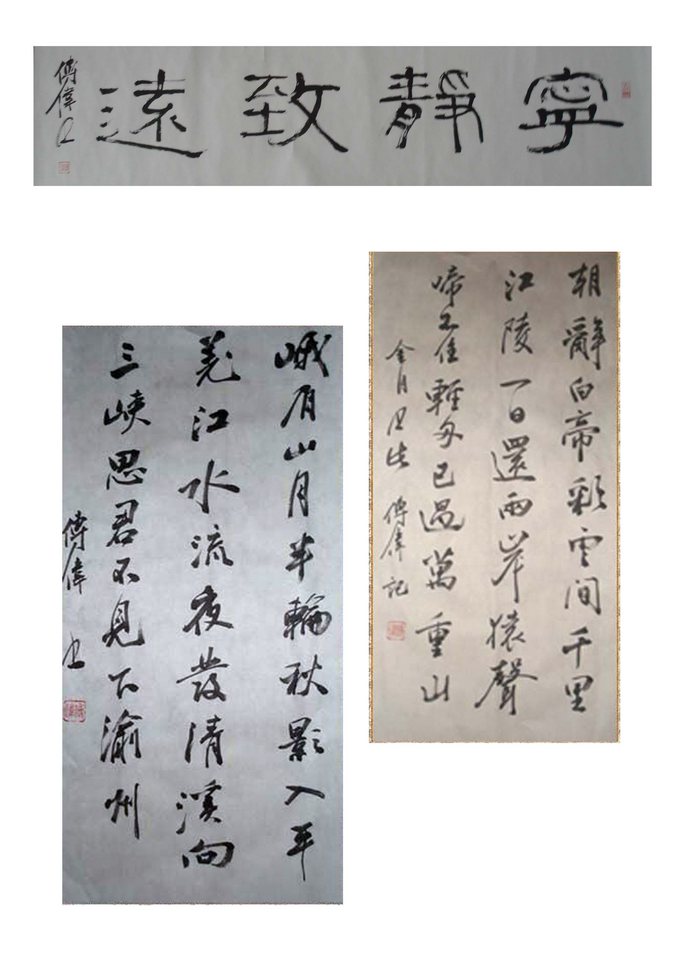 寧靜致遠
傅偉
朝辭白帝彩雲間千里
江陵一日還兩岸猿聲
啼不住輕舟已過萬重山
傅偉記
峨眉山月半輪秋影入平
羌江水流夜發清溪向
三峽思君不見下渝州
傅偉